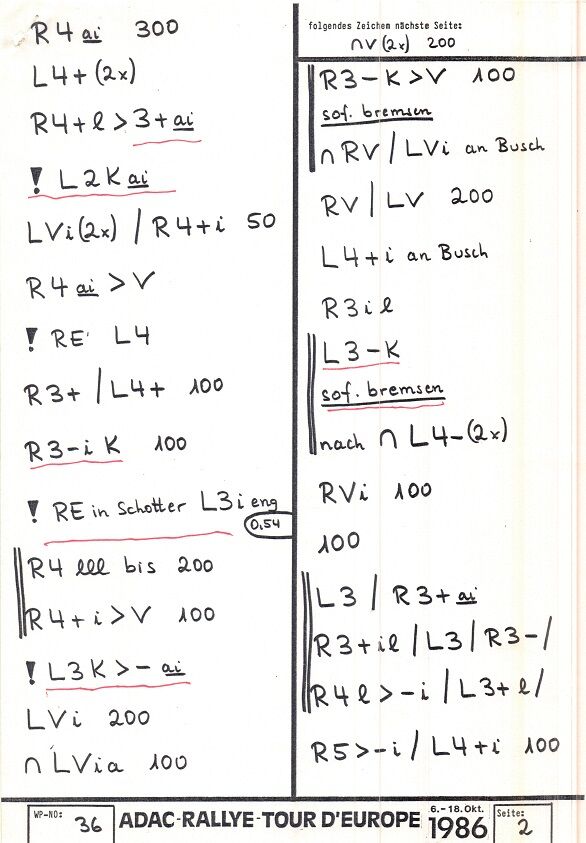 R4 ai 300
L4+(2x)
R4+l>3+ai
! L2K ai
LVi(2x) / R4+i 50
R4 ai > V
! RE L4
R3+ / L4+ 100
R3-i K 100
! RE in Schotter L3i eng
0,54
R4 lll bis 200
R4+i>V 100
! L3K>- ai
LVi 200
∩ LVia 100
folgendes Zeichen nächste Seite:
∩V(2x) 200
R3-K>V 100
sof. bremsen
∩ RV / LVi an Busch
RV / LV 200
L4+i an Busch
R3il
L3-K
sof. bremsen
nach ∩ L4-(2x)
RVi 100
100
L3 / R3+ai
R3+il / L3 / R3-/
R4l>-i / L3+l/
R5>-i / L4+i 100
WP-NO: 36
ADAC-RALLYE-TOUR D'EUROPE
6.-18.Okt.
1986
Seite: 2